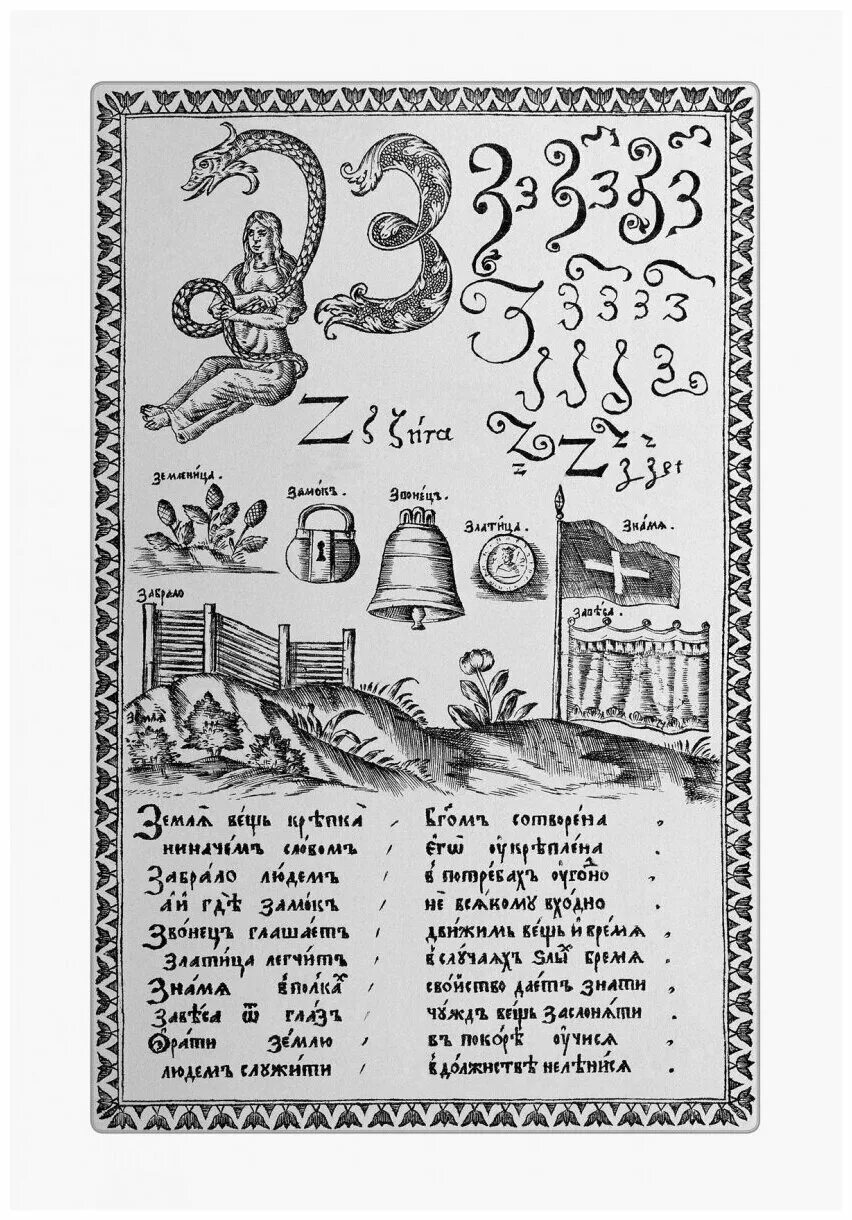 З З
Z ζ ζ ήτα
Z z Z z z
ζ ζet
Земленица.
Замокъ.
Звонецъ.
Златица.
Знамя.
Забрало
Завѣса.
Земля
Землѧ̀ ве́щь крѣпка̀ , Бг҃омъ сотворе́на ,
ниначе́мъ сло́вомъ , е҆гѡ̀ ᲂу҆крѣпле́на .
Забра́ло лю́демъ в потре́бахъ ᲂу҆го́дно ,
а҆ и҆ гдѣ̀ замо́къ , не всѧ́кому вхо́дно .
Звоне́цъ глаша́етъ , дви́жимь ве́щь и҆ вре́мѧ ,
Злати́ца легчи́тъ , в слу́чаѧхъ ѕлы́хъ бре́мѧ .
Зна́мѧ в полка́хъ , сво́йство дае́тъ зна́ти ,
Завѣ́са ѿ гла́зъ , чу́ждъ ве́щь заслонѧ́ти .
Ѻ҆ра́ти зе́млю , въ поко́рѣ ᲂу҆чи́сѧ ,
лю́демъ служи́ти , в до́лжнствѣ нелѣни́сѧ .